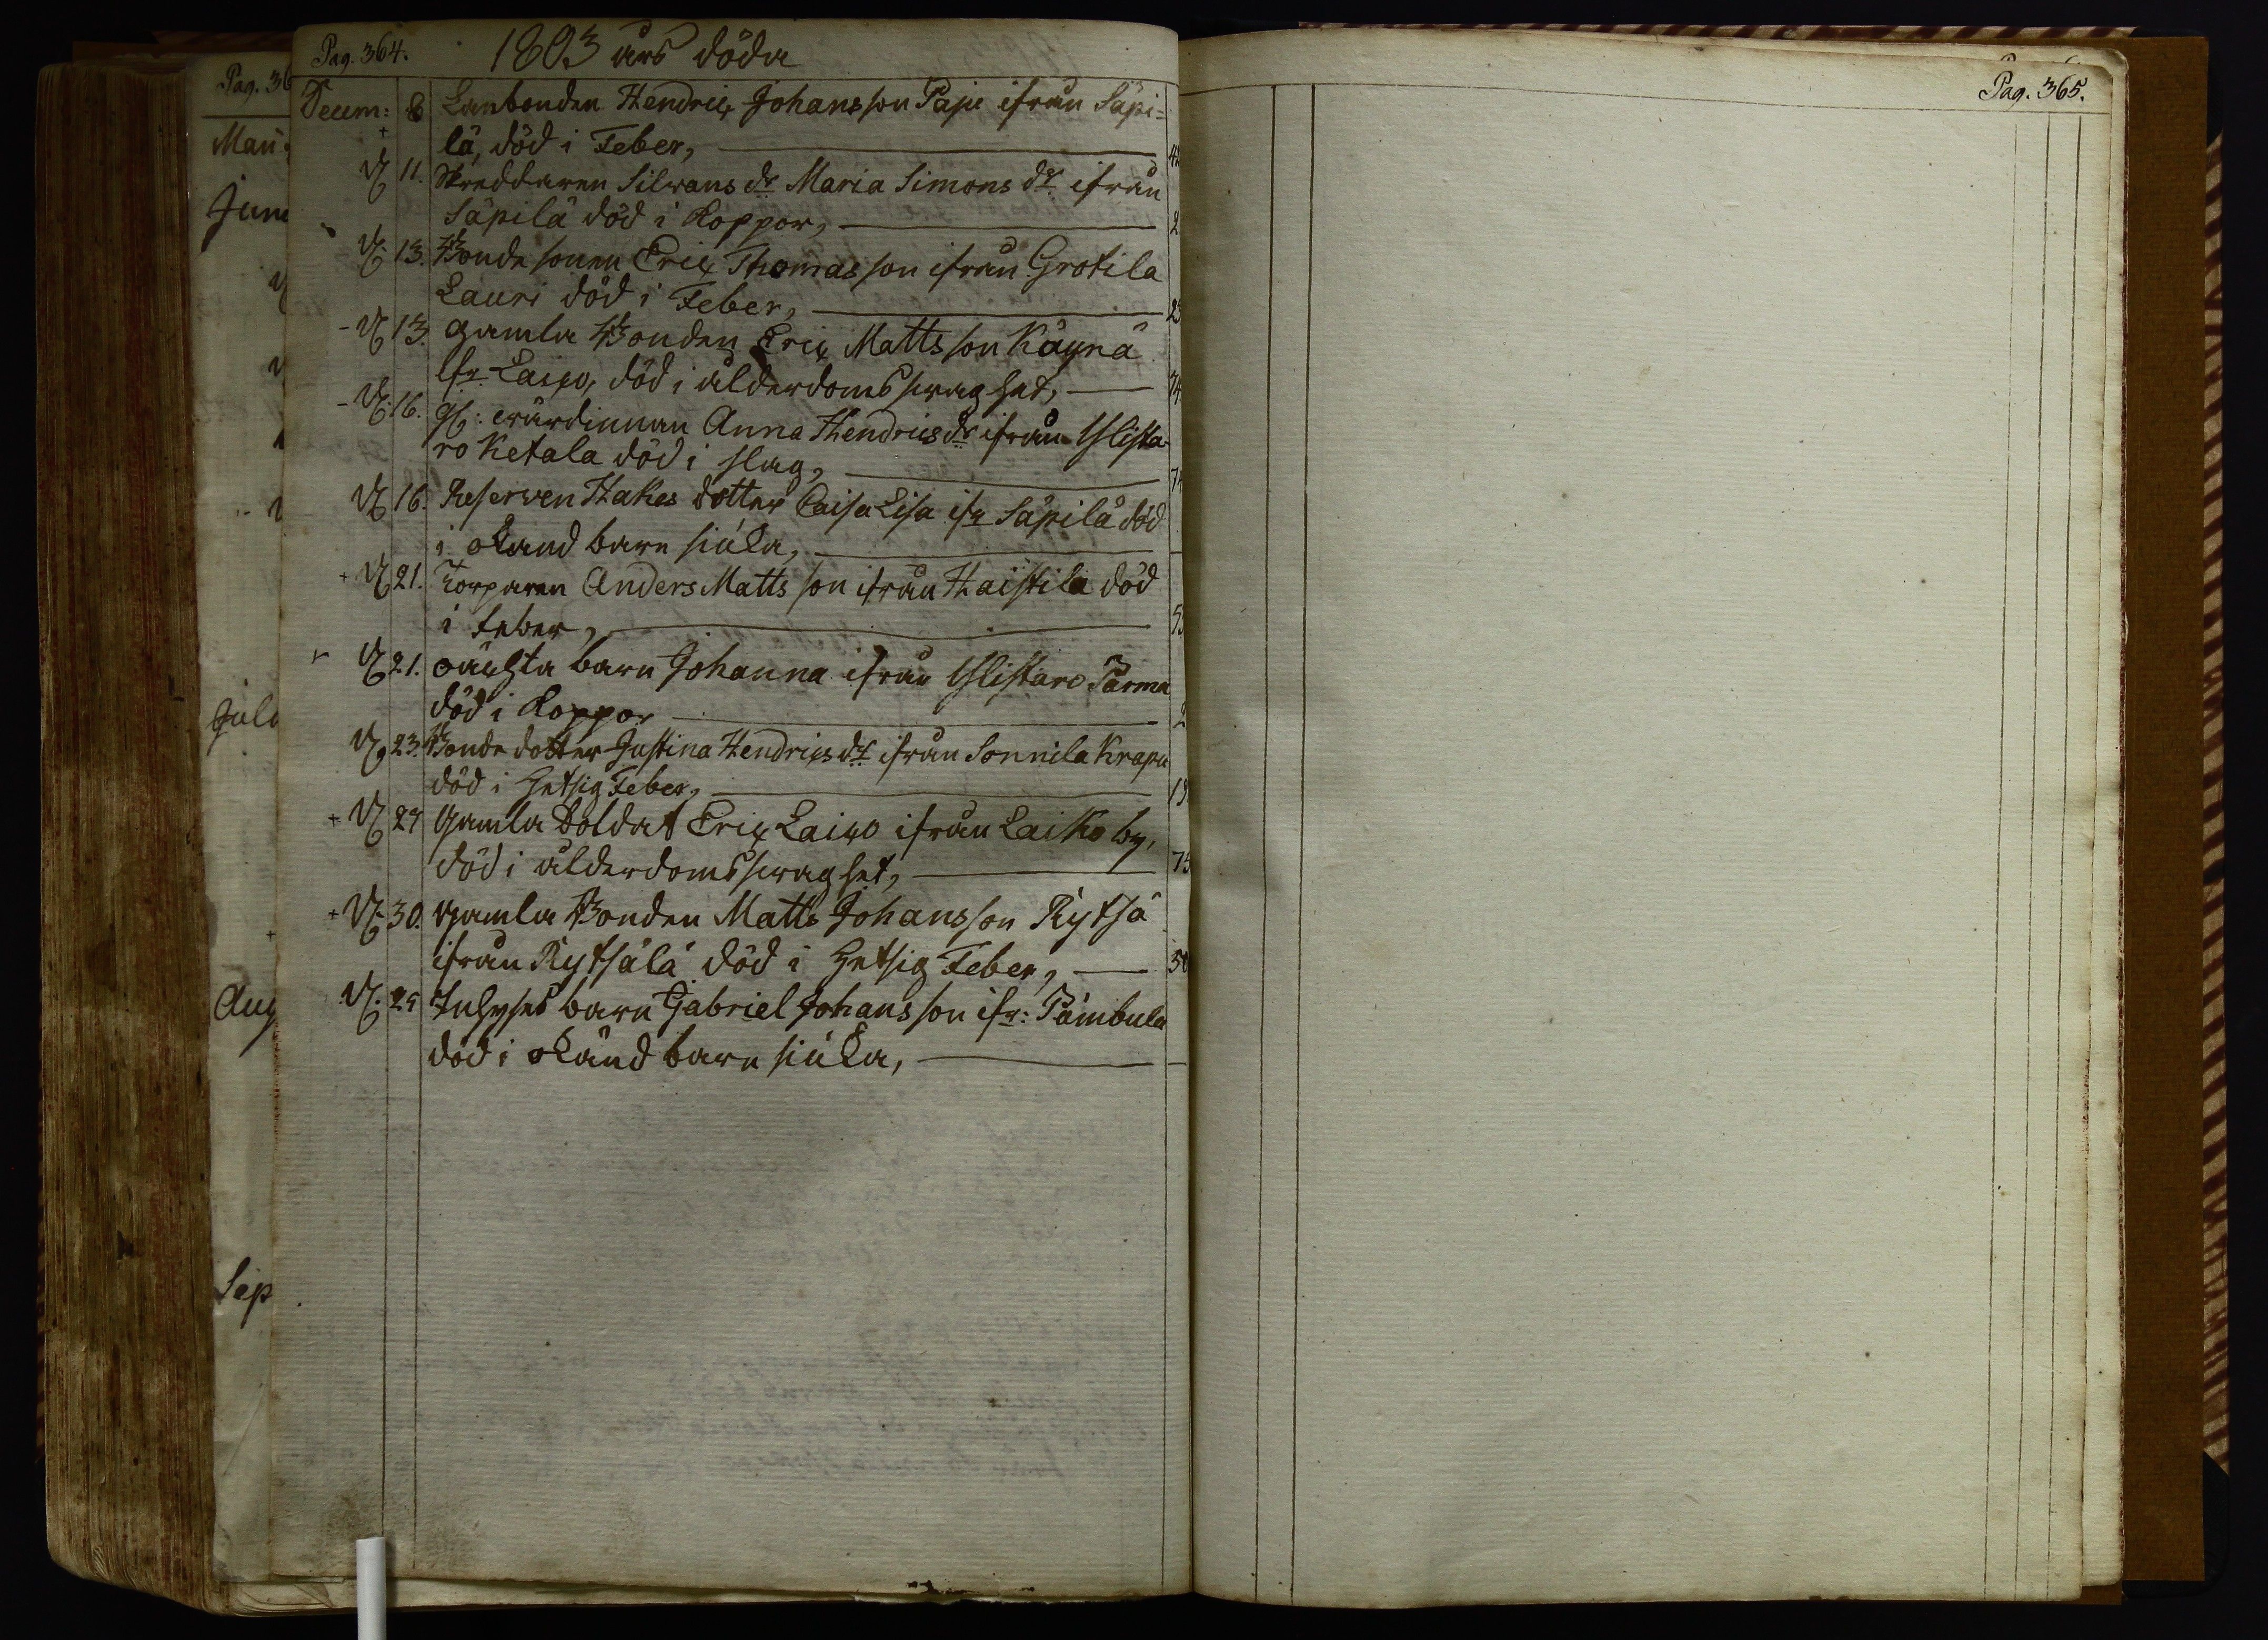 Pag. 364. 1803 års döda
Decem: 8 Lanbonden Hendric Johansson Paje ifrån Säpi=
lä, död i Feber, 42
11. Skreddaren Silvans dr Maria Simons dr ifrån
Säpilä död i Koppor, 2
13. Bonde sonen Eric Thomas son ifrån Grotila
Lauri död i Feber, 23
13. Gamla Bonden Eric Matts son Käyrä
ifr Laico, död i ålderdoms swaghet, 74
16. wärdinnan Anna Hendrics dr ifrån Ylista
ro Ketala död i slag,
16. Reserven Hakes dotter Caisa Lisa ifr Säpilä död
i okänd barn siuka,
21. Torparen Anders Matts son ifrån Haistila död
i Feber,
21. oächta barn Johanna ifrån Ylistaro Parma
död i Koppor 2
23. Bonde dotter Justina Hendrics dr ifrån Sonnila Krapu
död i Hetsig Feber,
29 Gamla Soldat Eric Laico ifrån Laiko by,
död i ålderdoms swaghet, 75
30. Gamla Bonden Matts Johansson Rytsä
ifrån Rytsälä död i Hetsig Feber, 50
25 Inhyses barn Gabriel Johans son ifr: Pämbula
död i okänd barn siuka,
Pag. 36
Maii
Juni
Juli
Aug
Sep
Pag. 365.